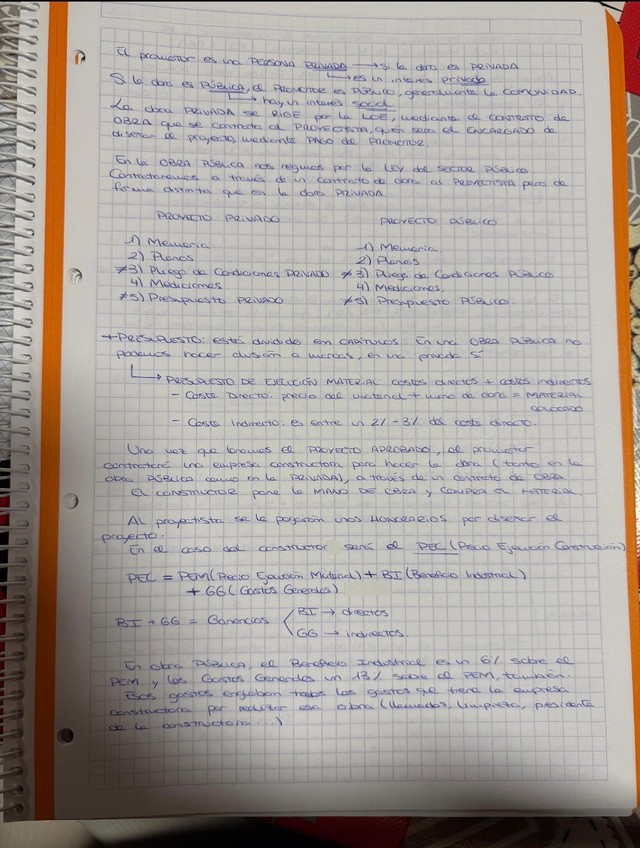 El promotor es una PERSONA PRIVADA → si la obra es PRIVADA
↳ es un interés privado
Si la obra es PÚBLICA, el PROMOTOR es PÚBLICO, generalmente la COMUNIDAD.
↳ hay un interés social
La obra PRIVADA se RIGE por la LOE, mediante de CONTRATO de
OBRA que se contrata al PROYECTISTA, quien será el ENCARGADO de
diseñar el proyecto, mediante PAGO del PROMOTOR.
En la OBRA PÚBLICA nos regimos por la LEY del SECTOR PÚBLICO
Contrataremos a través de un contrato de obra al PROYECTISTA pero de
forma distinta que en la obra PRIVADA.
PROYECTO PRIVADO PROYECTO PÚBLICO
1) Memoria 1) Memoria
2) Planos 2) Planos
≠3) Pliego de Condiciones PRIVADO ≠3) Pliego de Condiciones PÚBLICO
4) Mediciones 4) Mediciones.
≠5) Presupuesto PRIVADO ≠5) Presupuesto PÚBLICO.
+ PRESUPUESTO: está dividido em CAPÍTULOS. En una OBRA PÚBLICA no
podemos hacer alusión a marcas, en una privada sí
↳ PRESUPUESTO DE EJECUCIÓN MATERIAL costes directos + costes indirectos
- Coste Directo: precio del material + mano de obra = MATERIAL
COLOCADO
- Coste Indirecto: es entre un 2% - 3% del coste directo.
Una vez que tenemos el PROYECTO APROBADO, el promotor
contratará una empresa constructora para hacer la obra (tanto en la
obra PÚBLICA como en la PRIVADA), a través de un contrato de OBRA.
EL CONSTRUCTOR pone la MANO DE OBRA y COMPRA EL MATERIAL.
Al proyectista se le pagarán unos HONORARIOS por diseñar el
proyecto.
En el caso del constructor será el PEC (Precio Ejecución Construcción)
PEC = PEM (Precio Ejecución Material) + BI (Beneficio Industrial)
+ GG (Gastos Generales)
BI + GG = Ganancias BI → directos
GG → indirectos.
En obra PÚBLICA, el Beneficio Industrial es un 6% sobre el
PEM y los Gastos Generales un 13% sobre el PEM, también.
Esos gastos engloban todos los gastos que tiene la empresa
constructora por realizar esa obra (llamadas, limpieza, presidente
de la constructora...)